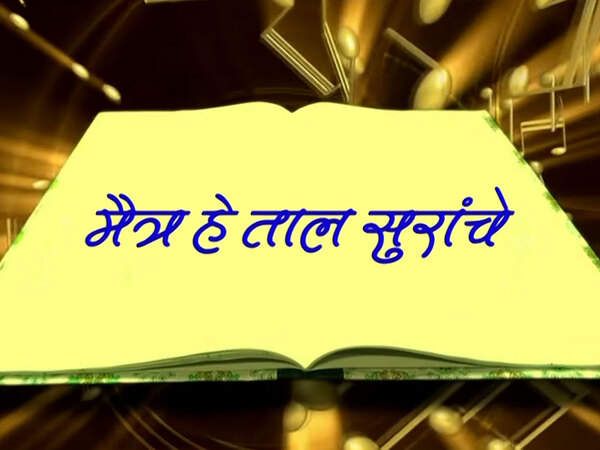 मैत्र हे ताल सुरांचे